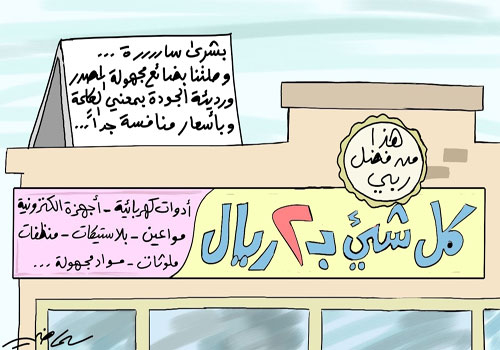 بشرى ساررررة ...
وصلتنا بضائع مجهولة المصدر
ورديئة الجودة بمعنى الكلمة
وبأسعار منافسة جداً...
هذا
من فضل
ربي
كل شيئ بـ ٢ ريال
أدوات كهربائية - أجهزة الكترونية
مواعين - بلاستيكات - منظفات
ملوثات - مواد مجهولة ...